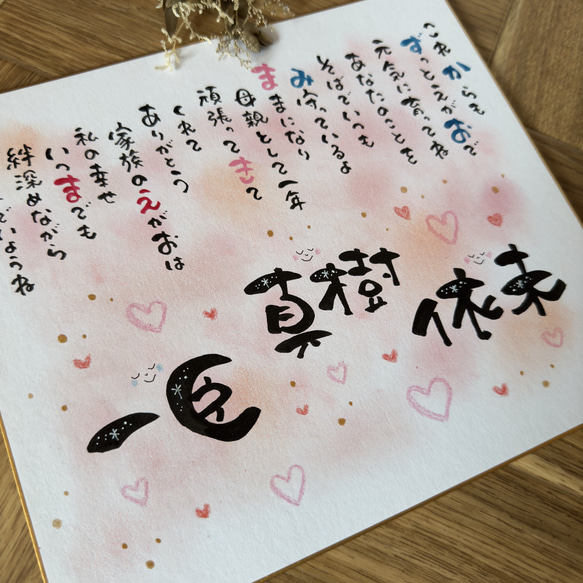 これからも
ずっとえがおで
元気に育ってね
あなたのことを
そばでいつも
み守っているよ
ままになり
母親として一年
頑張ってきて
くれて
ありがとう
家族のえがおは
私の幸せ
いつまでも
絆深めながら
でいようね
依未
真樹
一